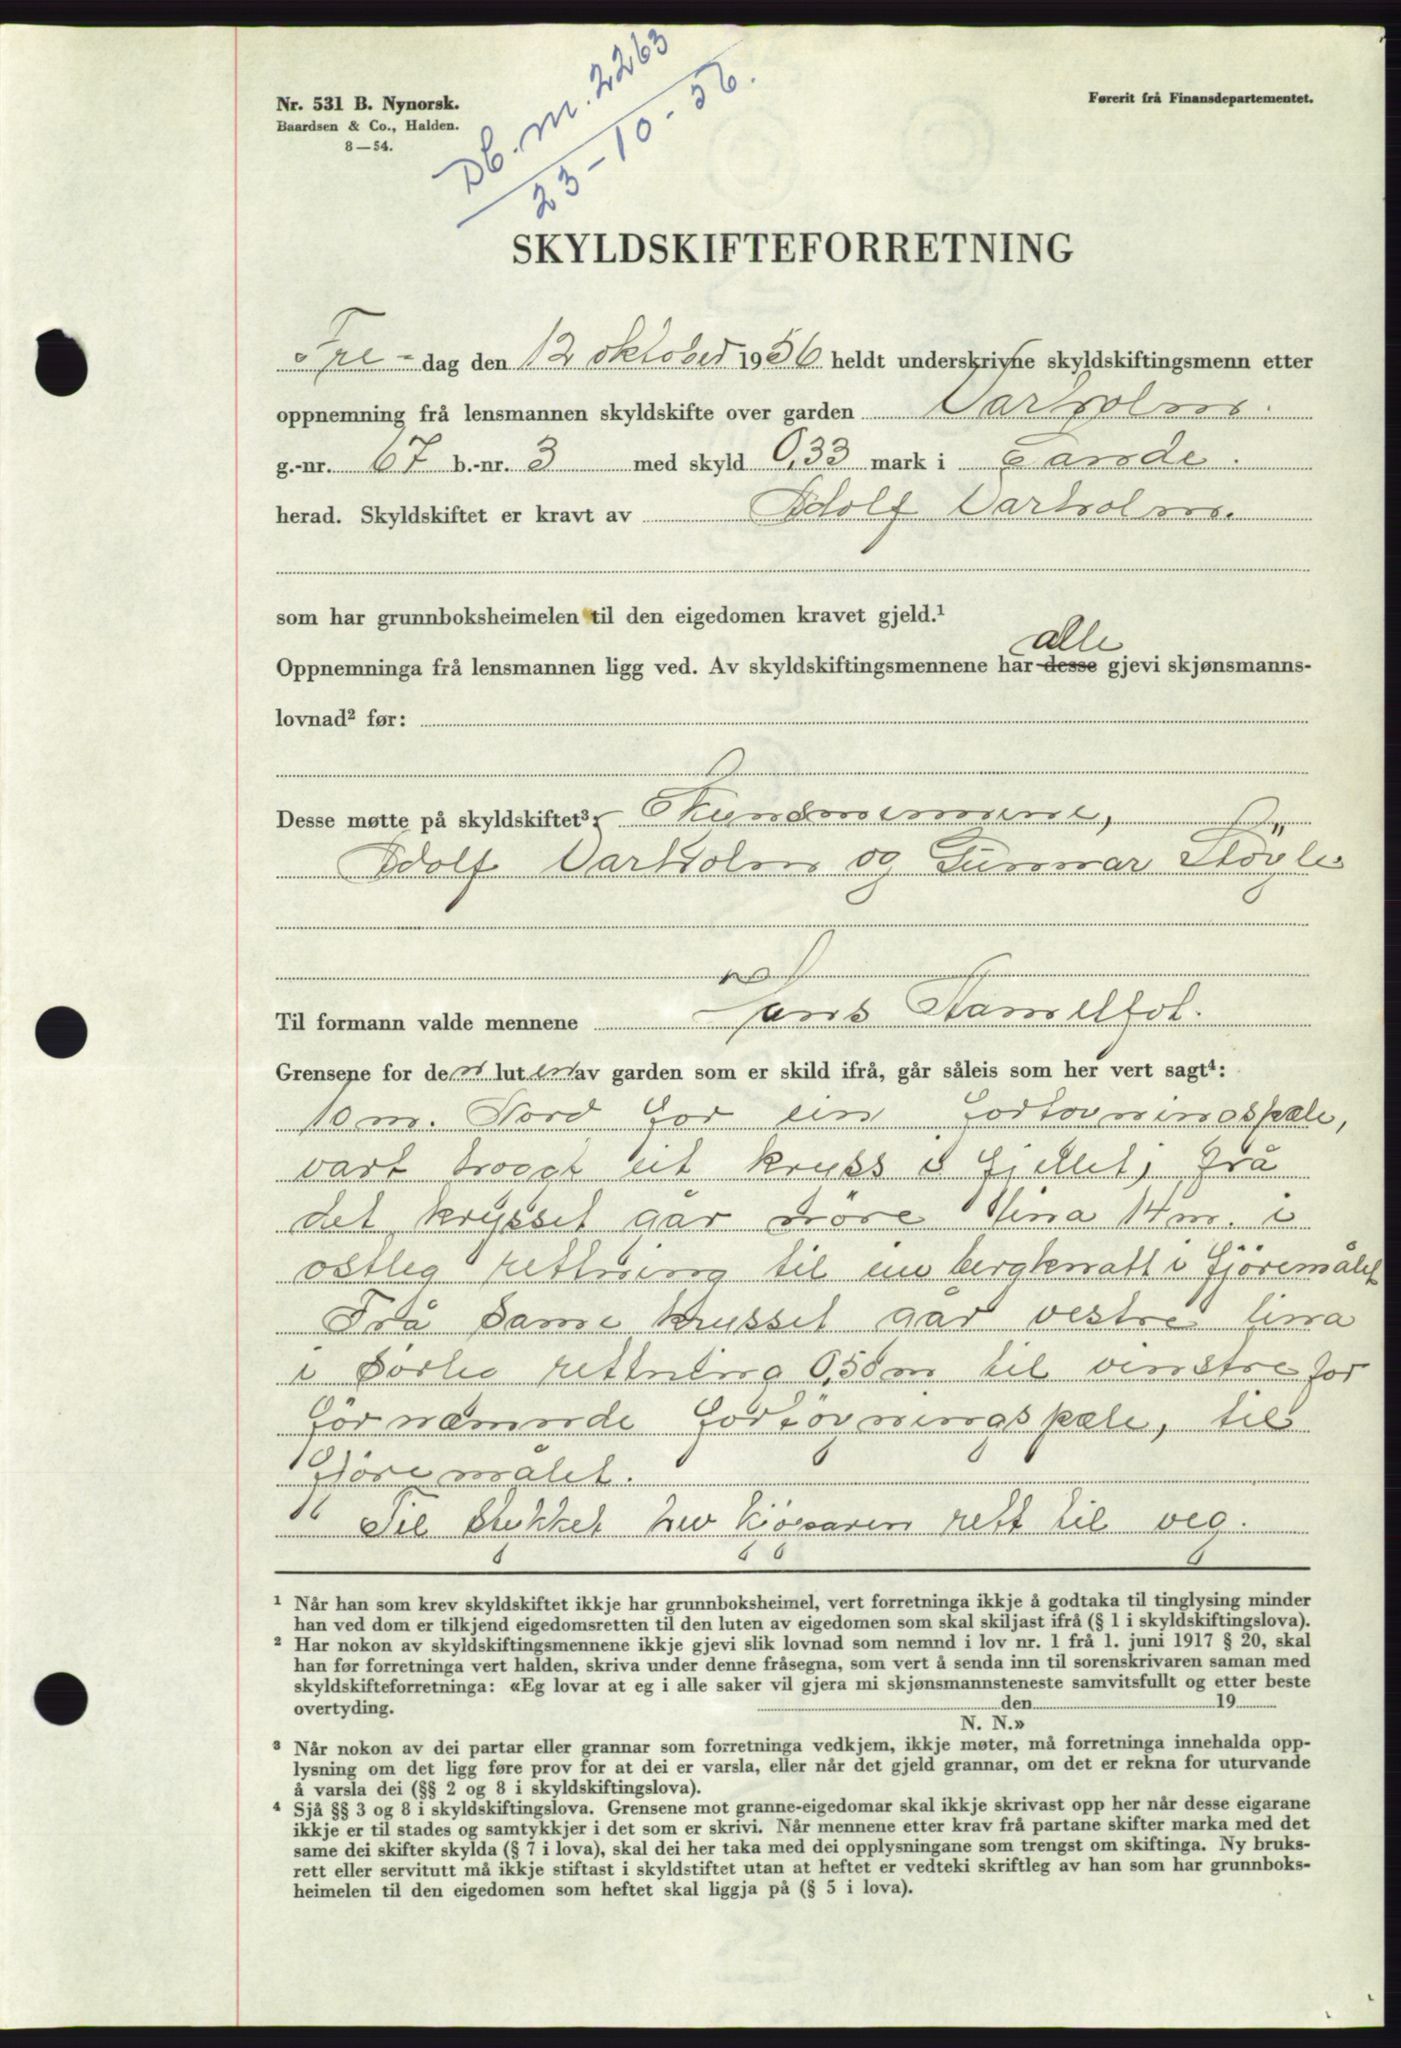 Db. nr. 2263
23-10-56.
Nr. 531 B. Nynorsk.
Baardsen & Co., Halden.
8—54.
Førerit frå Finansdepartementet.
SKYLDSKIFTEFORRETNING
Fre-dag den 12 oktober 1956 heldt underskrivne skyldskiftingsmenn etter
oppnemning frå lensmannen skyldskifte over garden Varholm.
g.-nr. 67 b.-nr. 3 med skyld 0,33 mark i Sande.
herad. Skyldskiftet er kravt av Adolf Varholm.
som har grunnboksheimelen til den eigedomen kravet gjeld.¹
alle
Oppnemninga frå lensmannen ligg ved. Av skyldskiftingsmennene har desse gjevi skjønsmanns-
lovnad² før:
Desse møtte på skyldskiftet³: Skynsmennene,
Adolf Varholm og Gunnar Støyle
Til formann valde mennene Jens Hamelfot.
Grensene for den luten av garden som er skild ifrå, går såleis som her vert sagt⁴:
10 m. Nord for ein fortövningspæle,
vart hoggt eit kryss i fjellet, frå
det krysset går nöre lina 14 m. i
ostleg rettning til ein bergknatt i fjöremålet
Frå same krysset går vestre lina
i sörleg rettning 0,50 m til vinstre for
förnæmnde fortövningspæle, til
fjöremålet.
Til stykket hev kjöparen rett til veg.
¹ Når han som krev skyldskiftet ikkje har grunnboksheimel, vert forretninga ikkje å godtaka til tinglysing minder
han ved dom er tilkjend eigedomsretten til den luten av eigedomen som skal skiljast ifrå (§ 1 i skyldskiftingslova).
² Har nokon av skyldskiftingsmennene ikkje gjevi slik lovnad som nemnd i lov nr. 1 frå 1. juni 1917 § 20, skal
han før forretninga vert halden, skriva under denne fråsegna, som vert å senda inn til sorenskrivaren saman med
skyldskifteforretninga: «Eg lovar at eg i alle saker vil gjera mi skjønsmannsteneste samvitsfullt og etter beste
overtyding. den 19
N. N.»
³ Når nokon av dei partar eller grannar som forretninga vedkjem, ikkje møter, må forretninga innehalda opp-
lysning om det ligg føre prov for at dei er varsla, eller når det gjeld grannar, om det er rekna for uturvande
å varsla dei (§§ 2 og 8 i skyldskiftingslova).
⁴ Sjå §§ 3 og 8 i skyldskiftingslova. Grensene mot granne-eigedomar skal ikkje skrivast opp her når desse eigarane
ikkje er til stades og samtykkjer i det som er skrivi. Når mennene etter krav frå partane skifter marka med det
same dei skifter skylda (§ 7 i lova), skal dei her taka med dei opplysningane som trengst om skiftinga. Ny bruks-
rett eller servitutt må ikkje stiftast i skyldstiftet utan at heftet er vedteki skriftleg av han som har grunnboks-
heimelen til den eigedomen som heftet skal liggja på (§ 5 i lova).